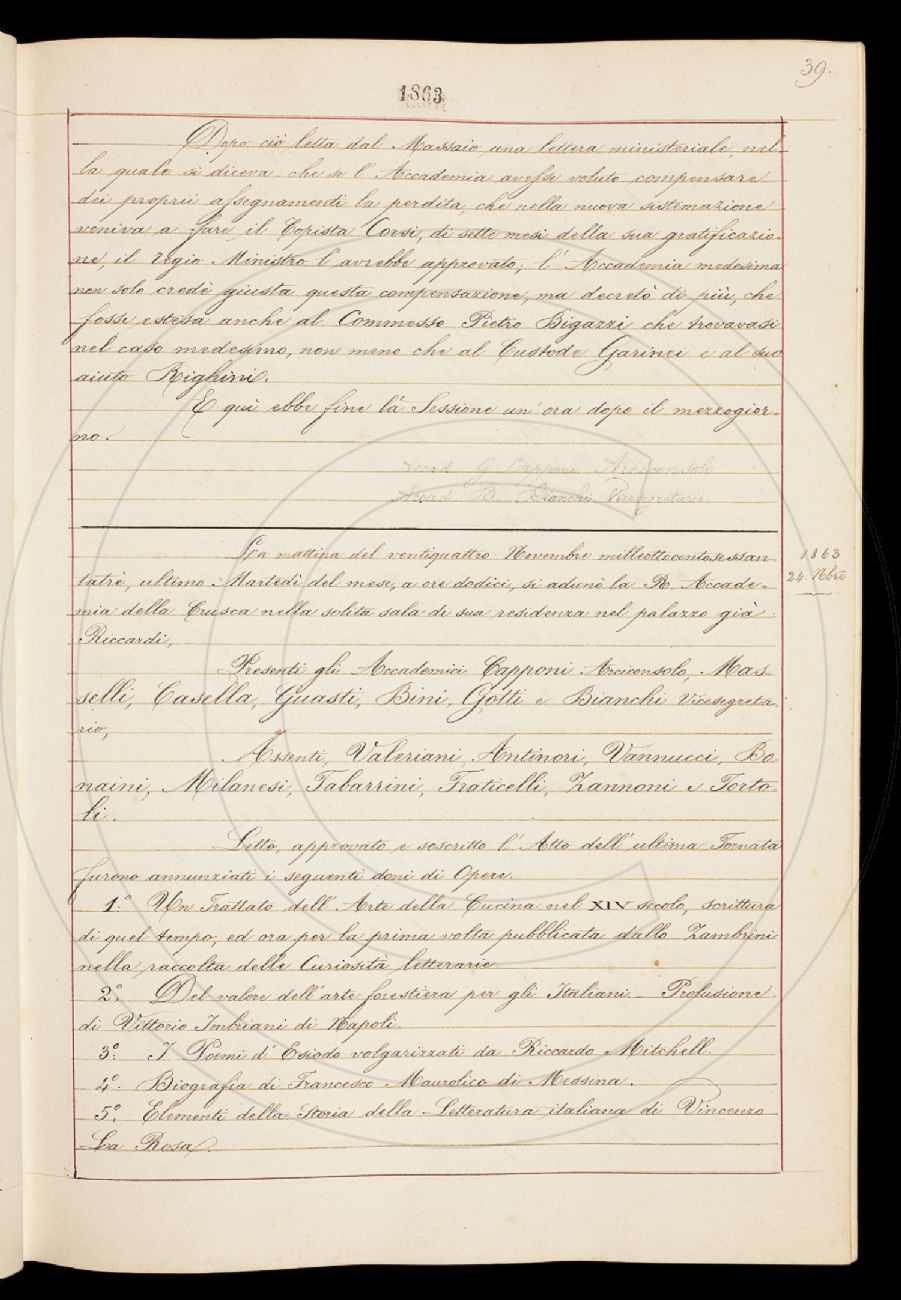 39.
1863
Dopo ciò letta dal Massaio una lettera ministeriale, nel-
la quale si diceva che se l'Accademia avesse voluto compensare
dei proprii assegnamenti la perdita, che nella nuova sistemazione
veniva a fare il Copista Corsi, di sette mesi della sua gratificazio-
ne, il Regio Ministro l'avrebbe approvato; l'Accademia medesima
non solo credè giusta questa compensazione, ma decretò di più, che
fosse estesa anche al Commesso Pietro Bigazzi che trovavasi
nel caso medesimo, non meno che al Custode Garinei e al suo
aiuto Righini.
E quì ebbe fine la Sessione un'ora dopo il mezzogior-
no.
Accad G. Capponi Arciconsolo
Accad B. Bianchi Vicesegretario.
La mattina del ventiquattro Novembre milleottocentosessan-
tatrè, ultimo Martedì del mese, a ore dodici, si adunò la R. Accade-
mia della Crusca nella solita sala di sua residenza nel palazzo già
Riccardi,
1863
24. Nbre
Presenti gli Accademici Capponi Arciconsolo, Mas-
selli, Casella, Guasti, Bini, Gotti e Bianchi Vicesegreta-
rio,
Assenti, Valeriani, Antinori, Vannucci, Bo-
naini, Milanesi, Tabarrini, Fraticelli, Zannoni e Torto-
li.
Letto, approvato e soscritto l'Atto dell'ultima Tornata
furono annunziati i seguenti doni di Opere.
1.° Un Trattato dell'Arte della Cucina nel XIV secolo, scrittura
di quel tempo, ed ora per la prima volta pubblicata dallo Zambrini
nella raccolta delle Curiosità letterarie.
2.° Del valore dell'arte forestiera per gli Italiani - Prolusione
di Vittorio Imbriani di Napoli.
3.° I Poemi d'Esiodo volgarizzati da Riccardo Mitchell.
4.° Biografia di Francesco Maurolico di Messina.
5.° Elementi della Storia della Letteratura italiana di Vincenzo
La Rosa.